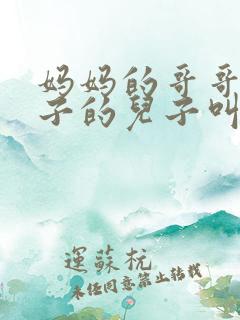 妈妈的哥哥
子的兒子叫
運蘇杬
未任同意禁止转载